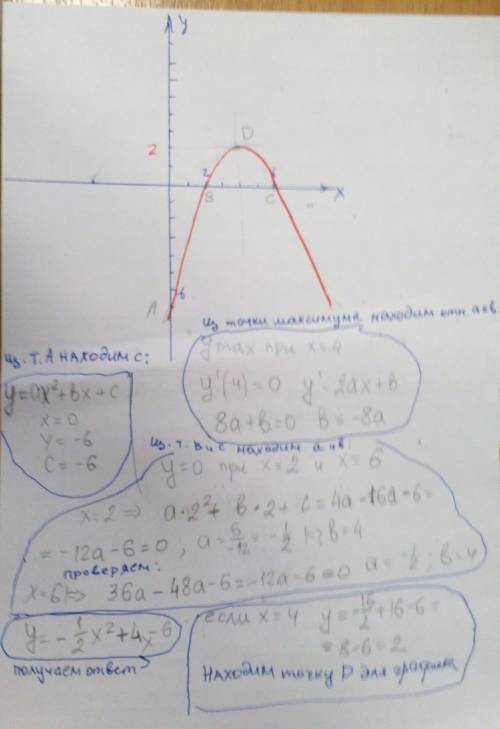 y
D
2
2
6
B
C
x
-6
A
из точки максимума находим отн. а и в
y max при x=4
y'(4)=0 y'=2ax+b
8a+b=0 b=-8a
из. т. А находим с:
y=ax²+bx+c
x=0
y=-6
c=-6
из. т. В и С находим а и в:
y=0 при x=2 и x=6
x=2 ⇒ a·2²+ b·2+ c=4a-16a-6=
=-12a-6=0; a=6/-12=-1/2 ⇒ b=4
проверяем:
x=6 ⇒ 36a-48a-6=-12a-6=0 a=-1/2; b=4
y=-1/2x²+4x-6
получаем ответ
если x=4 y=-16/2+16-6=
=8-6=2
находим точку D для графика